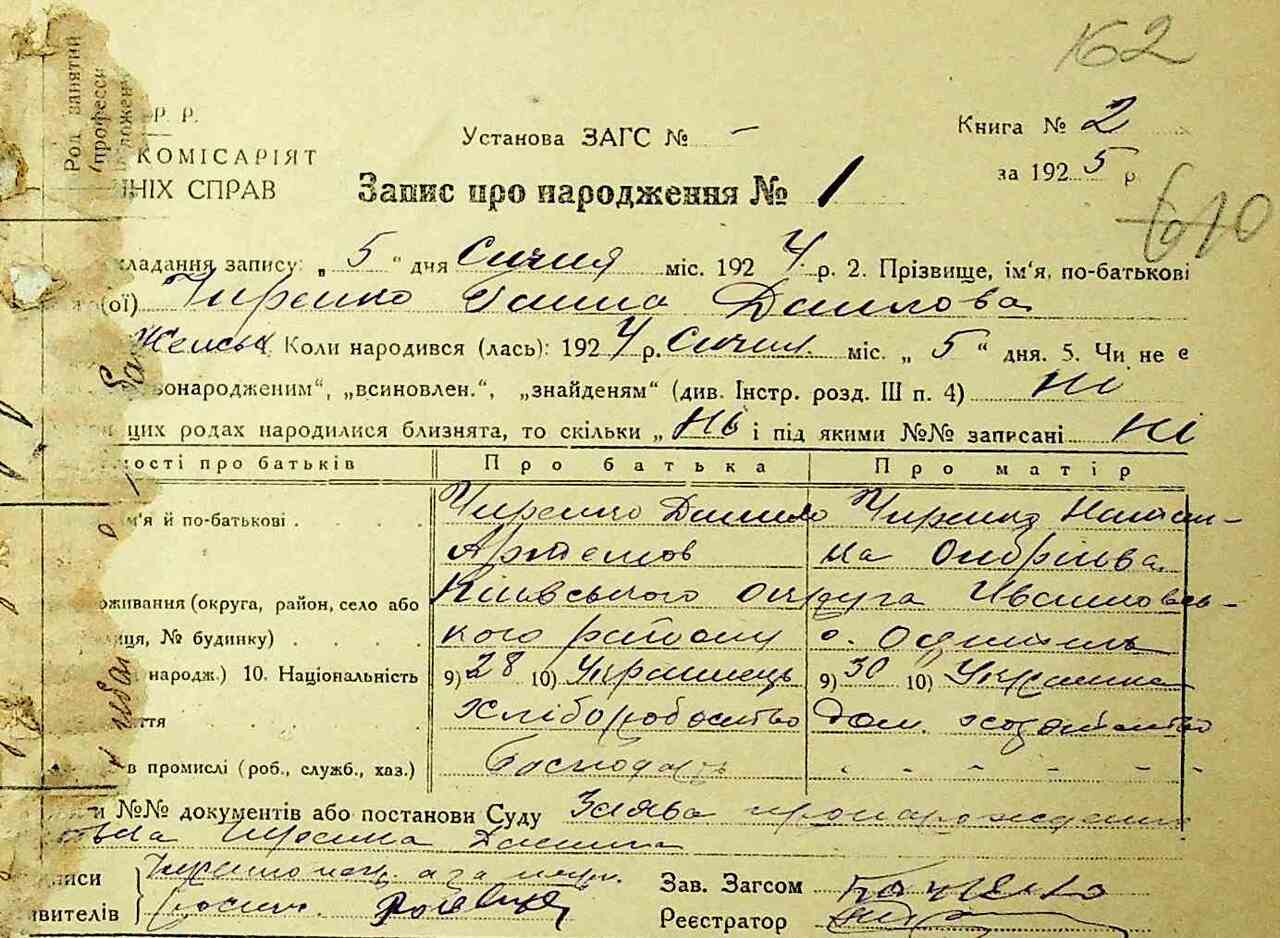 162
Род занятий
(професси
Р. Р.
КОМІСАРІЯТ
НІХ СПРАВ
Установа ЗАГС № -
Книга № 2
за 1925 р
Запис про народження № 1
610
кладання запису: „ 5 “ дня Січня міс. 1924 р. 2. Прізвище, ім'я, по-батькові
(ої) Чиренко Ганна Данилова
Женськ. Коли народився (лась): 1924 р. Січня міс. „ 5 “ дня. 5. Чи не є
вонародженим“, „всиновлен.“, „знайденям“ (див. Інстр. розд. III п. 4) Ні
цих родах народилися близнята, то скільки „ Ні і під якими №№ записані Ні
мості про батьків Про батька Про матір
м'я й по-батькові Чиренко Данило Чиренко Натал-
Артемов ка
оживання (округа, район, село або Київського Округа Иванковсь-
лиця, № будинку) кого району с.
народж.) 10. Національність 9) 28 10) Українець 9) 30 10) Українка
ття Хліборобство Дом.
в промислі (роб., служб., хаз.) Господарь - - - - - -
и №№ документів або постанови Суду Заява про нарождения
Данила
писи
явителів
Зав. Загсом
Реєстратор